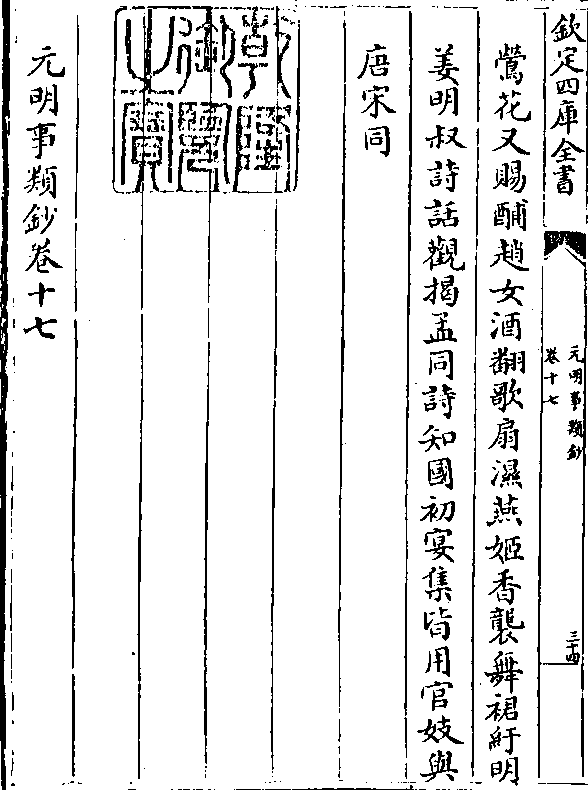 欽定四庫全書
元明事類鈔
卷十七
三十四
鶯花又賜酺趙女酒翻歌扇濕燕姬香襲舞裙紆明
姜明叔詩話觀揭孟同詩知國初宴集皆用官妓與
唐宋同
乾隆御覽之寶
元明事類鈔卷十七